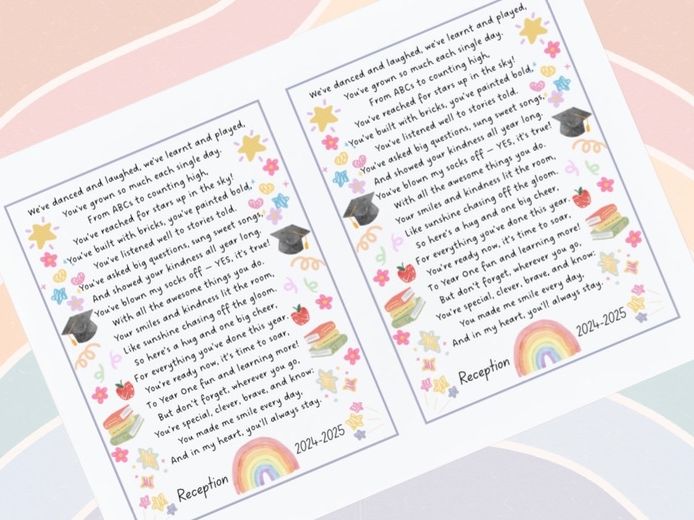 We've danced and laughed, we've learnt and played,
You've grown so much each single day.
From ABCs to counting high,
You've reached for stars up in the sky!
You've built with bricks, you've painted bold,
You've listened well to stories told.
You've asked big questions, sung sweet songs,
And showed your kindness all year long.
You've blown my socks off – YES, it's true!
With all the awesome things you do.
Your smiles and kindness lit the room,
Like sunshine chasing off the gloom.
So here's a hug and one big cheer,
For everything you've done this year.
You're ready now, it's time to soar,
To Year One fun and learning more!
But don't forget, wherever you go,
You're special, clever, brave, and know:
You made me smile every day,
And in my heart, you'll always stay.
Reception 2024-2025
We've danced and laughed, we've learnt and played,
You've grown so much each single day.
From ABCs to counting high,
You've reached for stars up in the sky!
You've built with bricks, you've painted bold,
You've listened well to stories told.
You've asked big questions, sung sweet songs,
And showed your kindness all year long.
You've blown my socks off – YES, it's true!
With all the awesome things you do.
Your smiles and kindness lit the room,
Like sunshine chasing off the gloom.
So here's a hug and one big cheer,
For everything you've done this year.
You're ready now, it's time to soar,
To Year One fun and learning more!
But don't forget, wherever you go,
You're special, clever, brave, and know:
You made me smile every day,
And in my heart, you'll always stay.
Reception 2024-2025